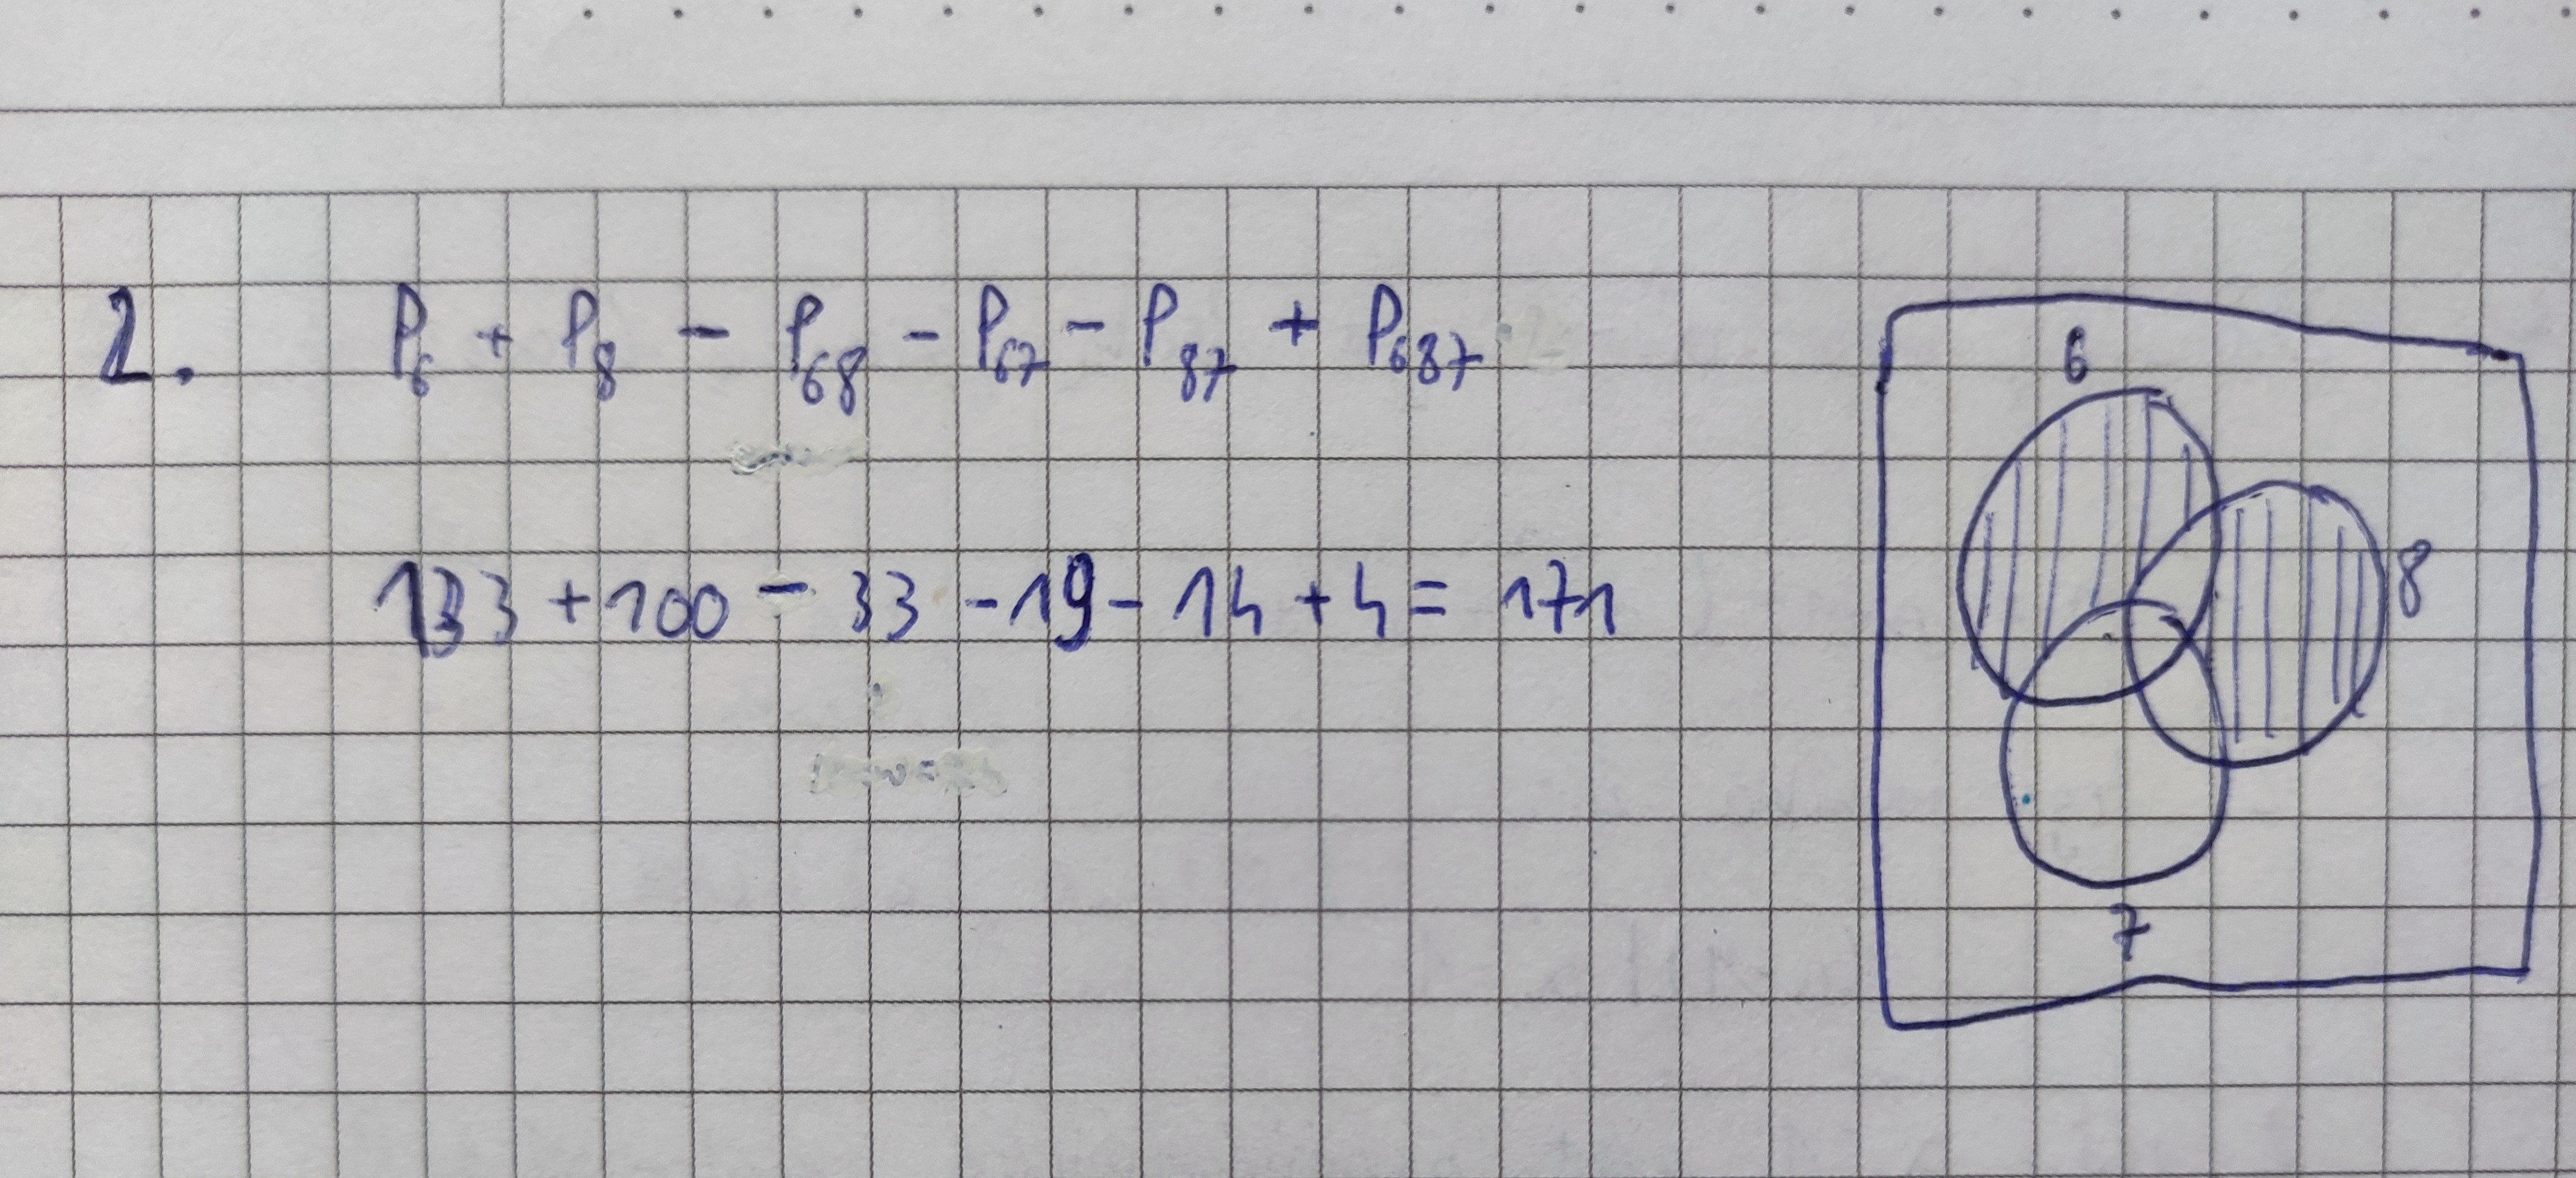 2. P₆ + P₈ - P₆₈ - P₆₇ - P₈₇ + P₆₈₇
133 + 100 - 33 - 19 - 14 + 4 = 171
6
8
7